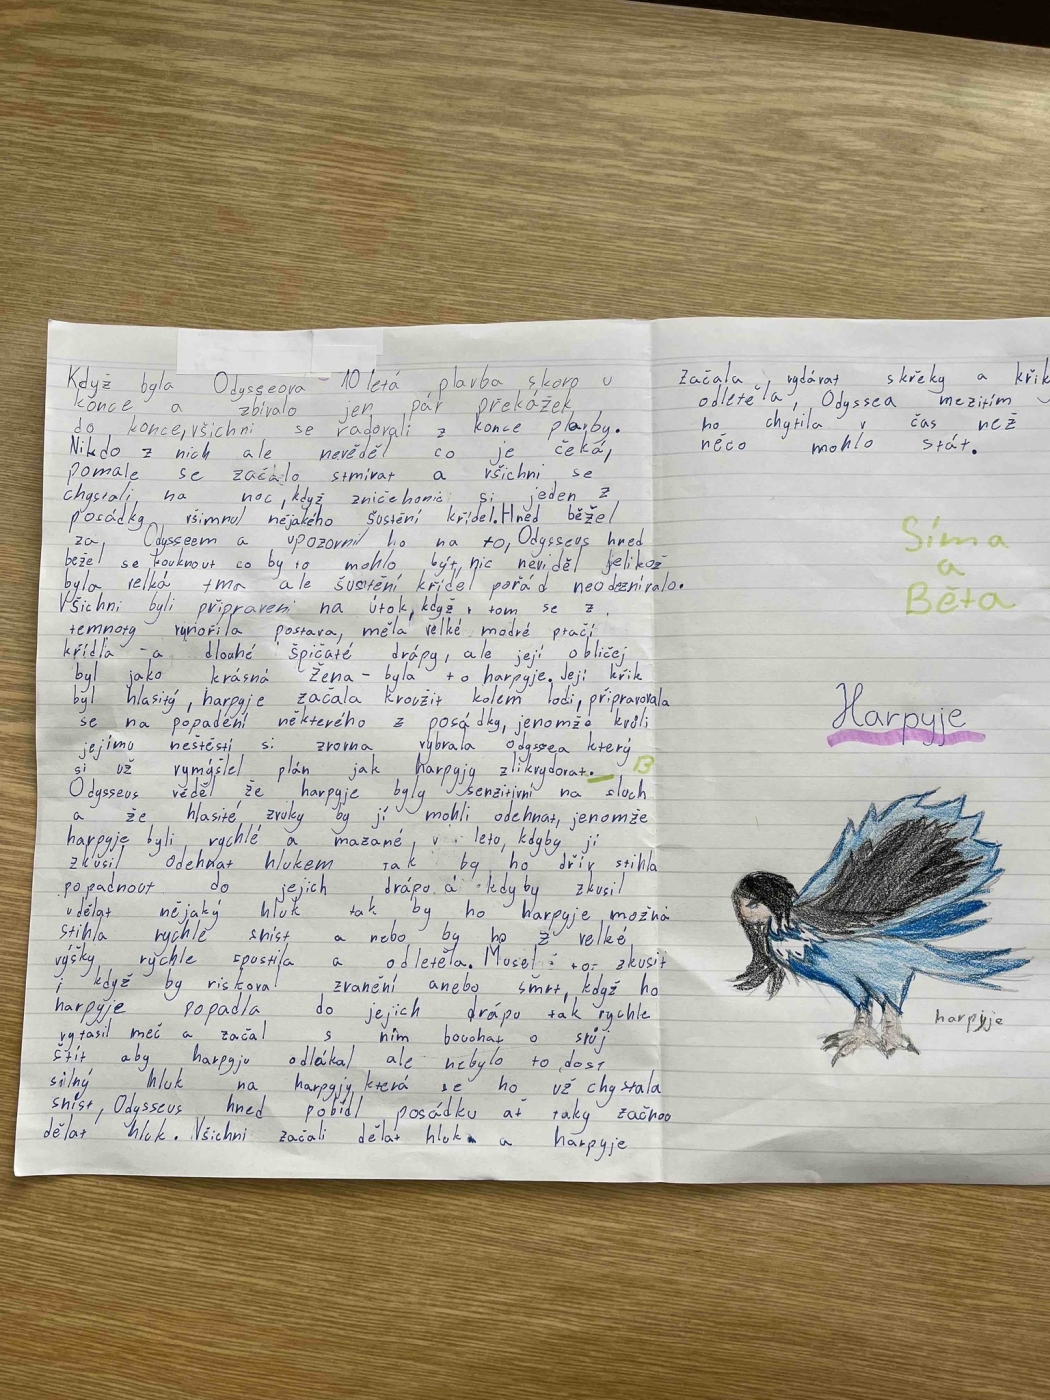 Když byla Odysseova 10letá plavba skoro u
konce a zbívalo jen pár překážek
do konce, všichni se radovali z konce plavby.
Nikdo z nich ale nevěděl co je čeká,
pomale se začalo stmívat a všichni se
chystali na noc, když zničehonic si jeden z
posádky všimnul nějakého šustění křídel. Hned běžel
za Odysseem a upozornil ho na to, Odysseus hned
bežel se kouknout co by to mohlo být, nic neviděl jelikož
byla velká tma ale šustění křídel pořád neodeznívalo.
Všichni byli připraveni na útok, když v tom se z
temnoty vynořila postava, měla velké modré ptačí
křídla a dlouhé špičaté drápy, ale její obličej
byl jako krásná žena - byla to harpyje. Její křik
byl hlasitý, harpyje začala kroužit kolem lodi, připravovala
se na popadení některého z posádky, jenomže kvůli
jejímu neštěstí si zrovna vybrala odyssea který
si už vymýšlel plán jak harpyjy zlikvydovat. B
Odysseus věděl že harpyje byly senzitivní na sluch
a že hlasité zvuky by jí mohli odehnat, jenomže
harpyje byli rychlé a mazané, v letu, kdyby jí
zkusil odehnat hlukem tak by ho dřív stihla
popadnout do jejich drápů a kdyby zkusil
udělat nějaký hluk tak by ho harpyje možná
stihla rychle sníst a nebo by ho z velké
výšky rychle spustila a odletěla. Musel to zkusit
i když by riskoval zranění anebo smrt, když ho
harpyje popadla do jejich drápů tak rychle
vytasil meč a začal s ním bouchat o svůj
štít aby harpyju odlákal ale nebylo to dost
silný hluk na harpyjy která se ho už chystala
sníst, Odysseus hned pobídl posádku ať taky začnou
dělat hluk. Všichni začali dělat hluk a harpyje
začala vydávat skřeky a křik
odletěla, Odyssea mezitím
ho chytila v čas než
něco mohlo stát.
Síma
a
Běta
Harpyje
harpyje